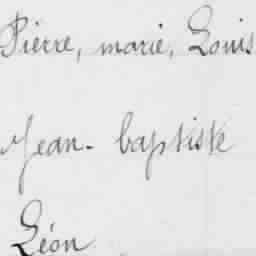 Pierre, marie, Louis
Jean-baptiste
Léon